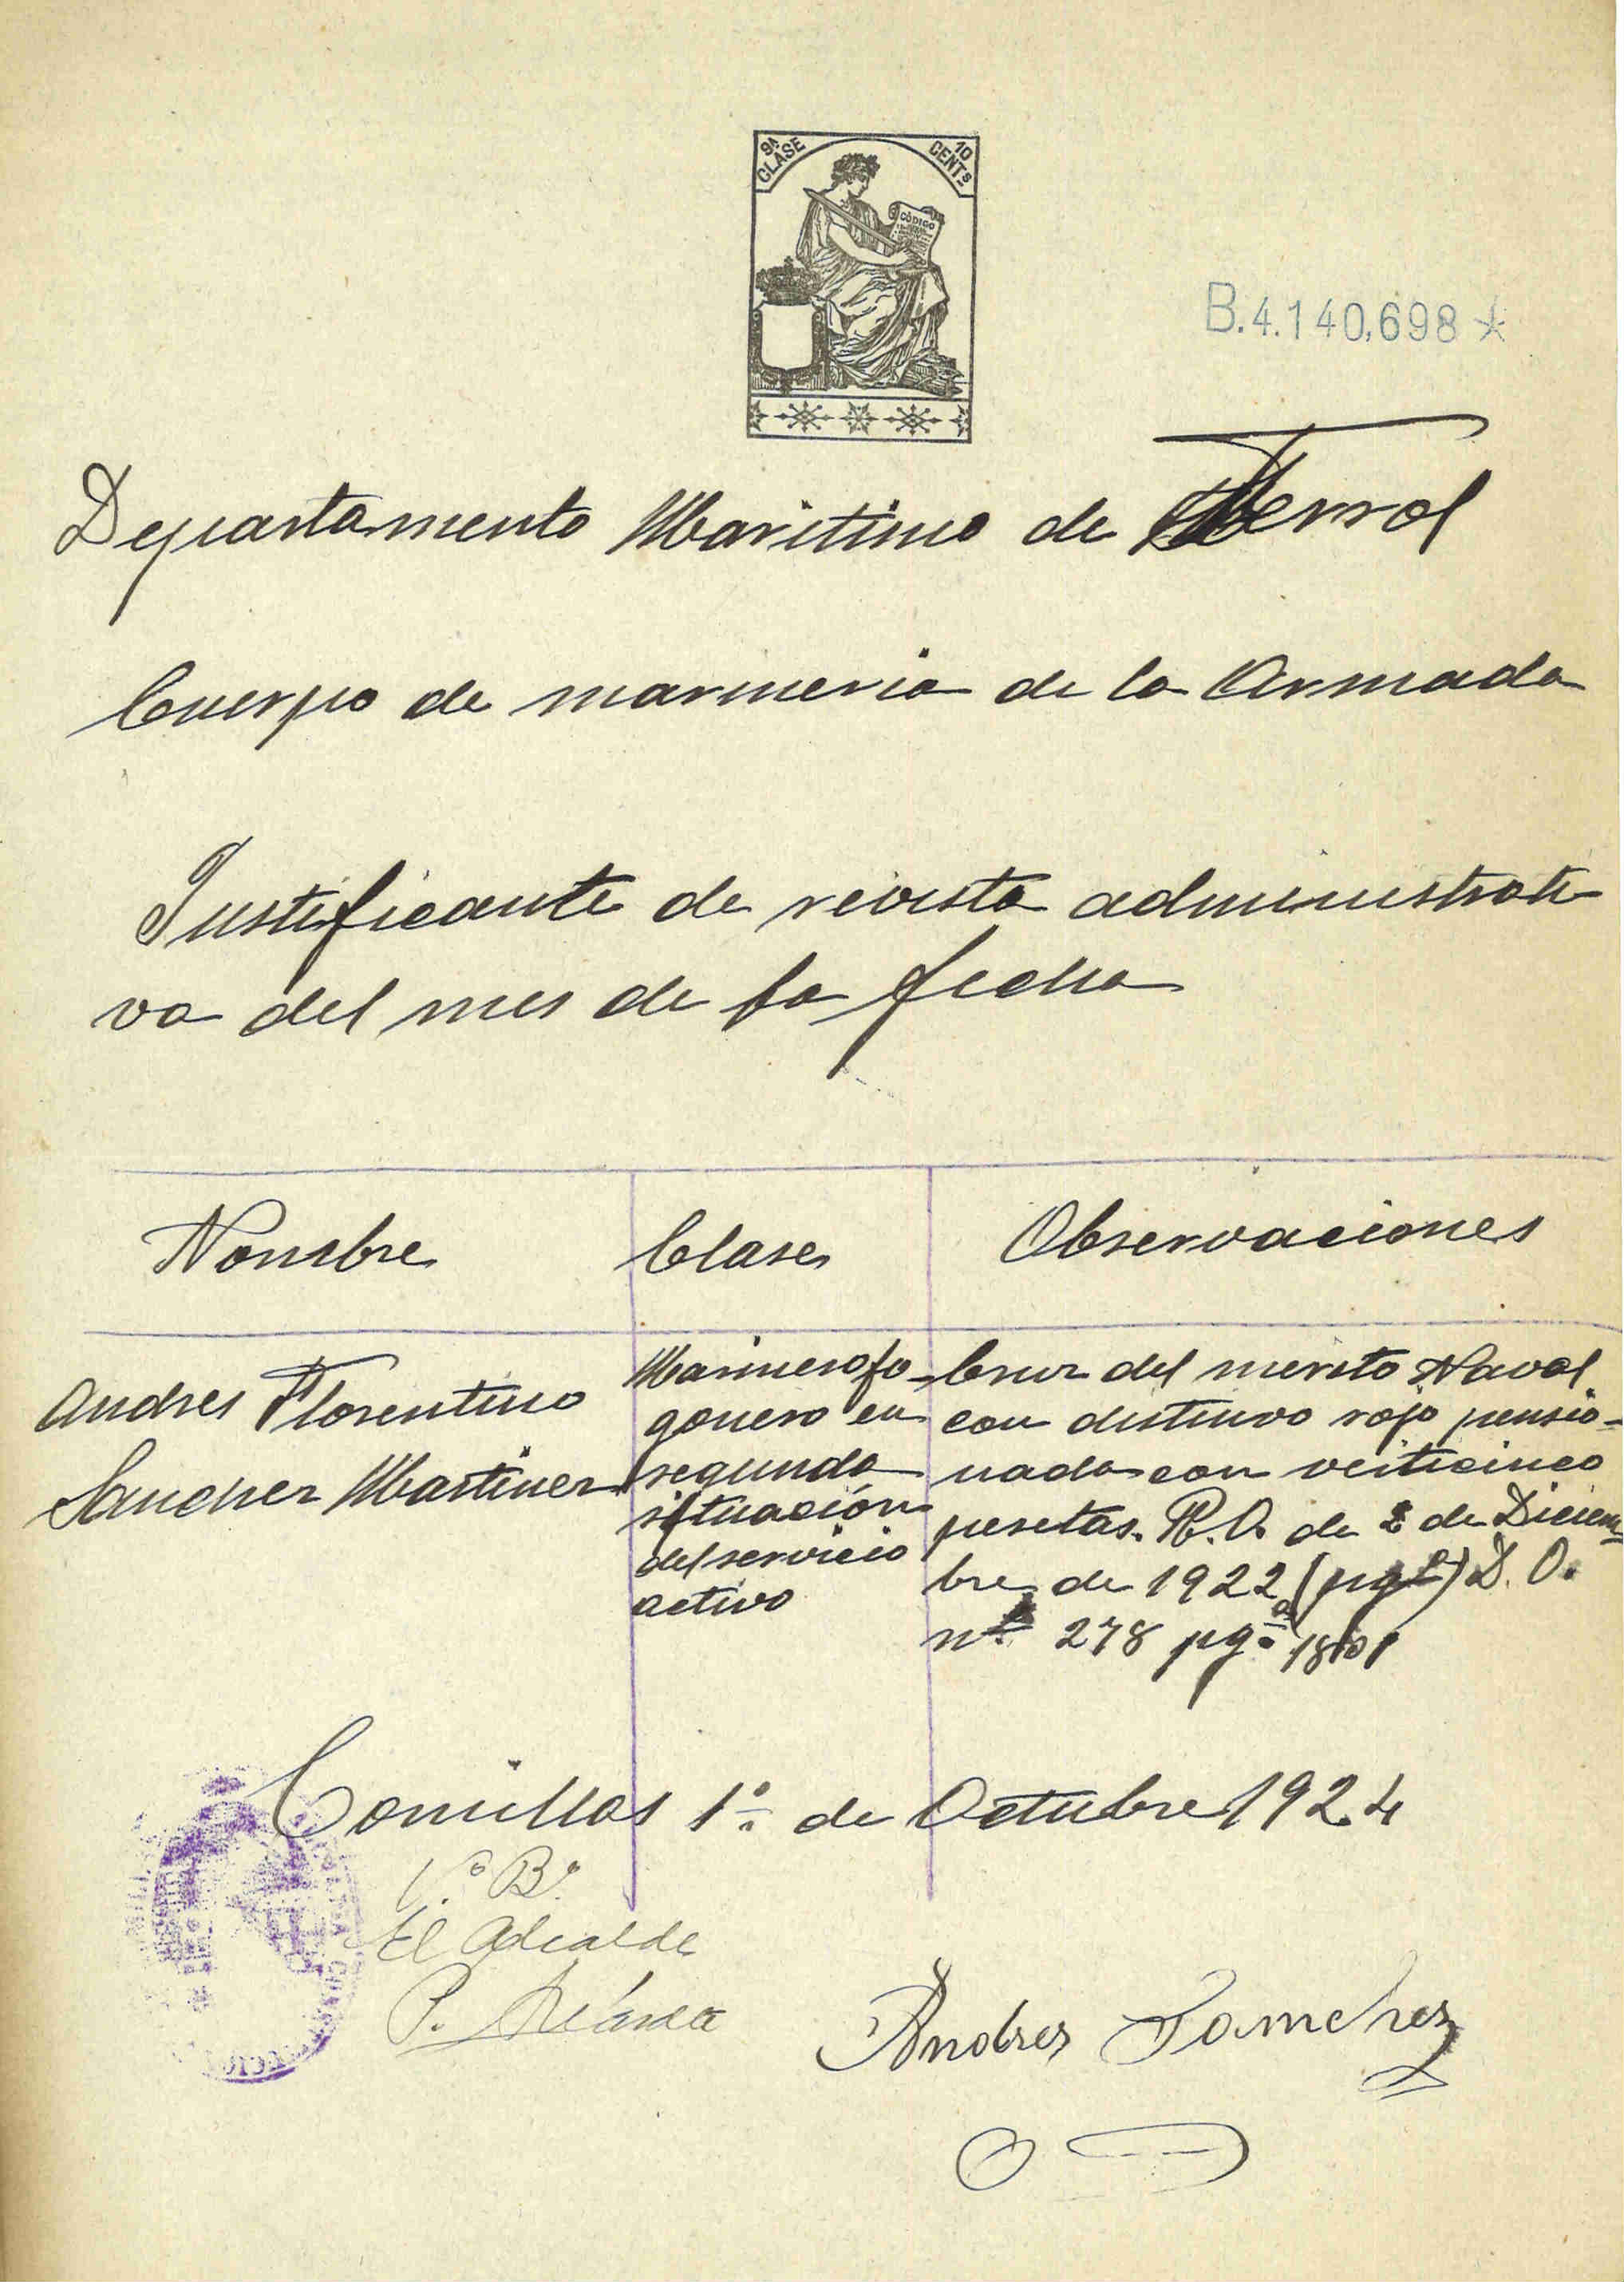 9A CLASE
10 CENTS
CÓDIGO
B.4.140,698 *
Departamento Maritimo de Ferrol
Cuerpo de marineria de la Armada
Justificante de revista administrati
va del mes de la fecha
Nombre Clase Observaciones
Andres Florentino
Sanchez Martinez
Marinero fo-
gonero en
segunda
situación
del servicio
activo
Cruz del merito Naval
con distinvo rojo pensio-
nada con veiticinco
pesetas. R.O. de 2 de Diciem-
bre de 1922 (pgª) D.O.
nº 278 pgª 1801
Comillas 1º de Octubre 1924
V.º B.º
El Alcalde
P.
Andres Sanchez